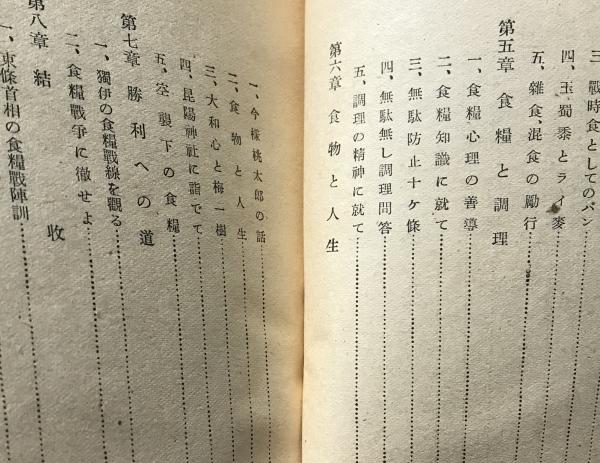 三、戰時食としてのパン
四、玉蜀黍とライ麥
五、雜食、混食の勵行
第五章 食糧と調理
一、食糧心理の善導
二、食糧知識に就て
三、無駄防止十ケ條
四、無駄無し調理問答
五、調理の精神に就て
第六章 食物と人生
一、今様桃太郎の話
二、食物と人生
三、大和心と梅一樹
四、昆陽神社に詣でて
五、空襲下の食糧
第七章 勝利への道
一、獨伊の食糧戰線を觀る
二、食糧戰爭に徹せよ
第八章 結收
一、東條首相の食糧戰陣訓